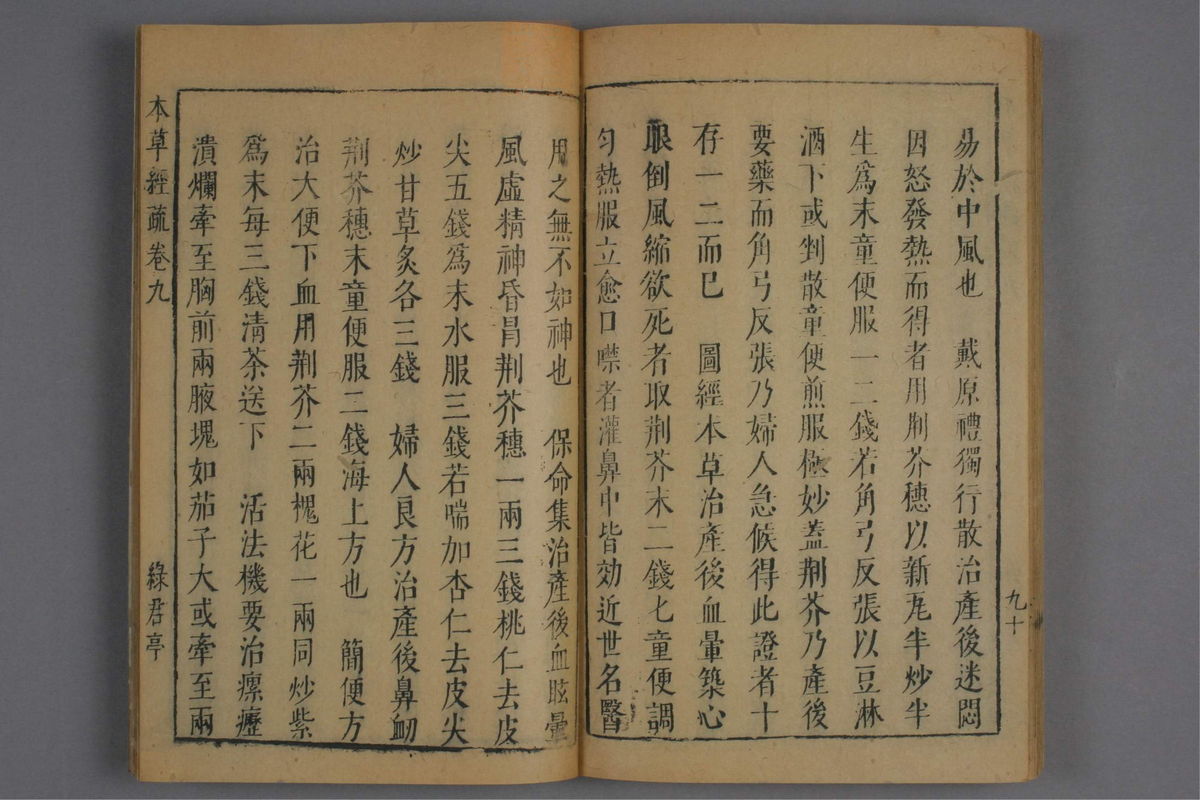 易於中風也　戴原禮獨行散治產後迷悶
因怒發熱而得者用荆芥穗以新瓦半炒半
生爲末童便服一二錢若角弓反張以豆淋
酒下或剉散童便煎服極妙蓋荆芥乃產後
要藥而角弓反張乃婦人急候得此證者十
存一二而巳　圖經本草治產後血暈築心
眼倒風縮欲死者取荆芥末二錢七童便調
匀熱服立愈口噤者灌鼻中皆効近世名醫
九十
用之無不如神也　保命集治產後血眩暈
風虛精神昏冒荆芥穗一兩三錢桃仁去皮
尖五錢爲末水服三錢若喘加杏仁去皮尖
炒甘草炙各三錢　婦人良方治產後鼻衂
荆芥穗末童便服二錢海上方也　簡便方
治大便下血用荆芥二兩槐花一兩同炒紫
爲末每三錢清茶送下　活法機要治瘰癧
潰爛牽至胸前兩腋塊如茄子大或牽至兩
本草經疏卷九
綠君亭